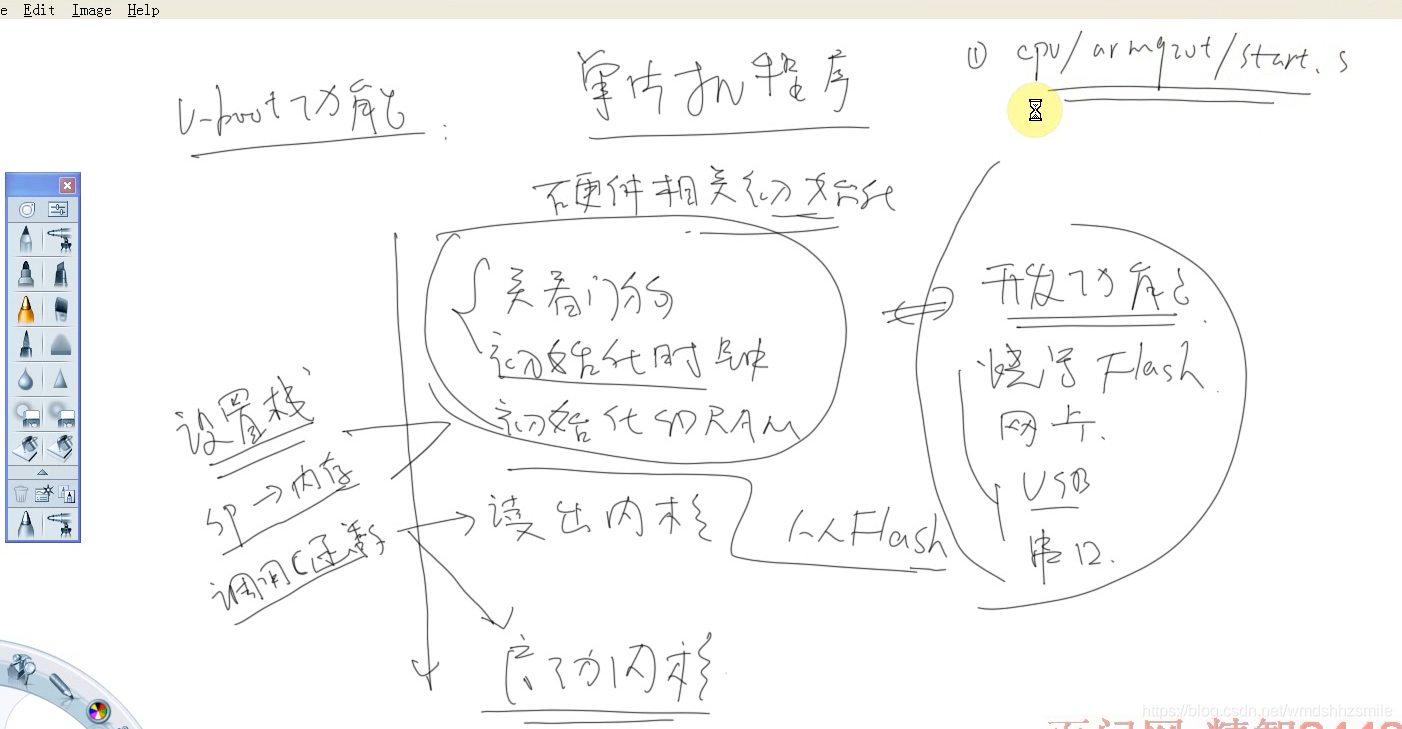 e Edit Image Help
u-boot功能:
单片机程序
① cpu/arm920t/start.s
硬件相关初始化
关看门狗
初始化时钟
初始化SDRAM
设置栈
SP→内存
调用C函数
读出内核
从Flash
启动内核
开发功能
烧写Flash
网卡.
USB
串口.
https://blog.csdn.net/wmdshhzsmile